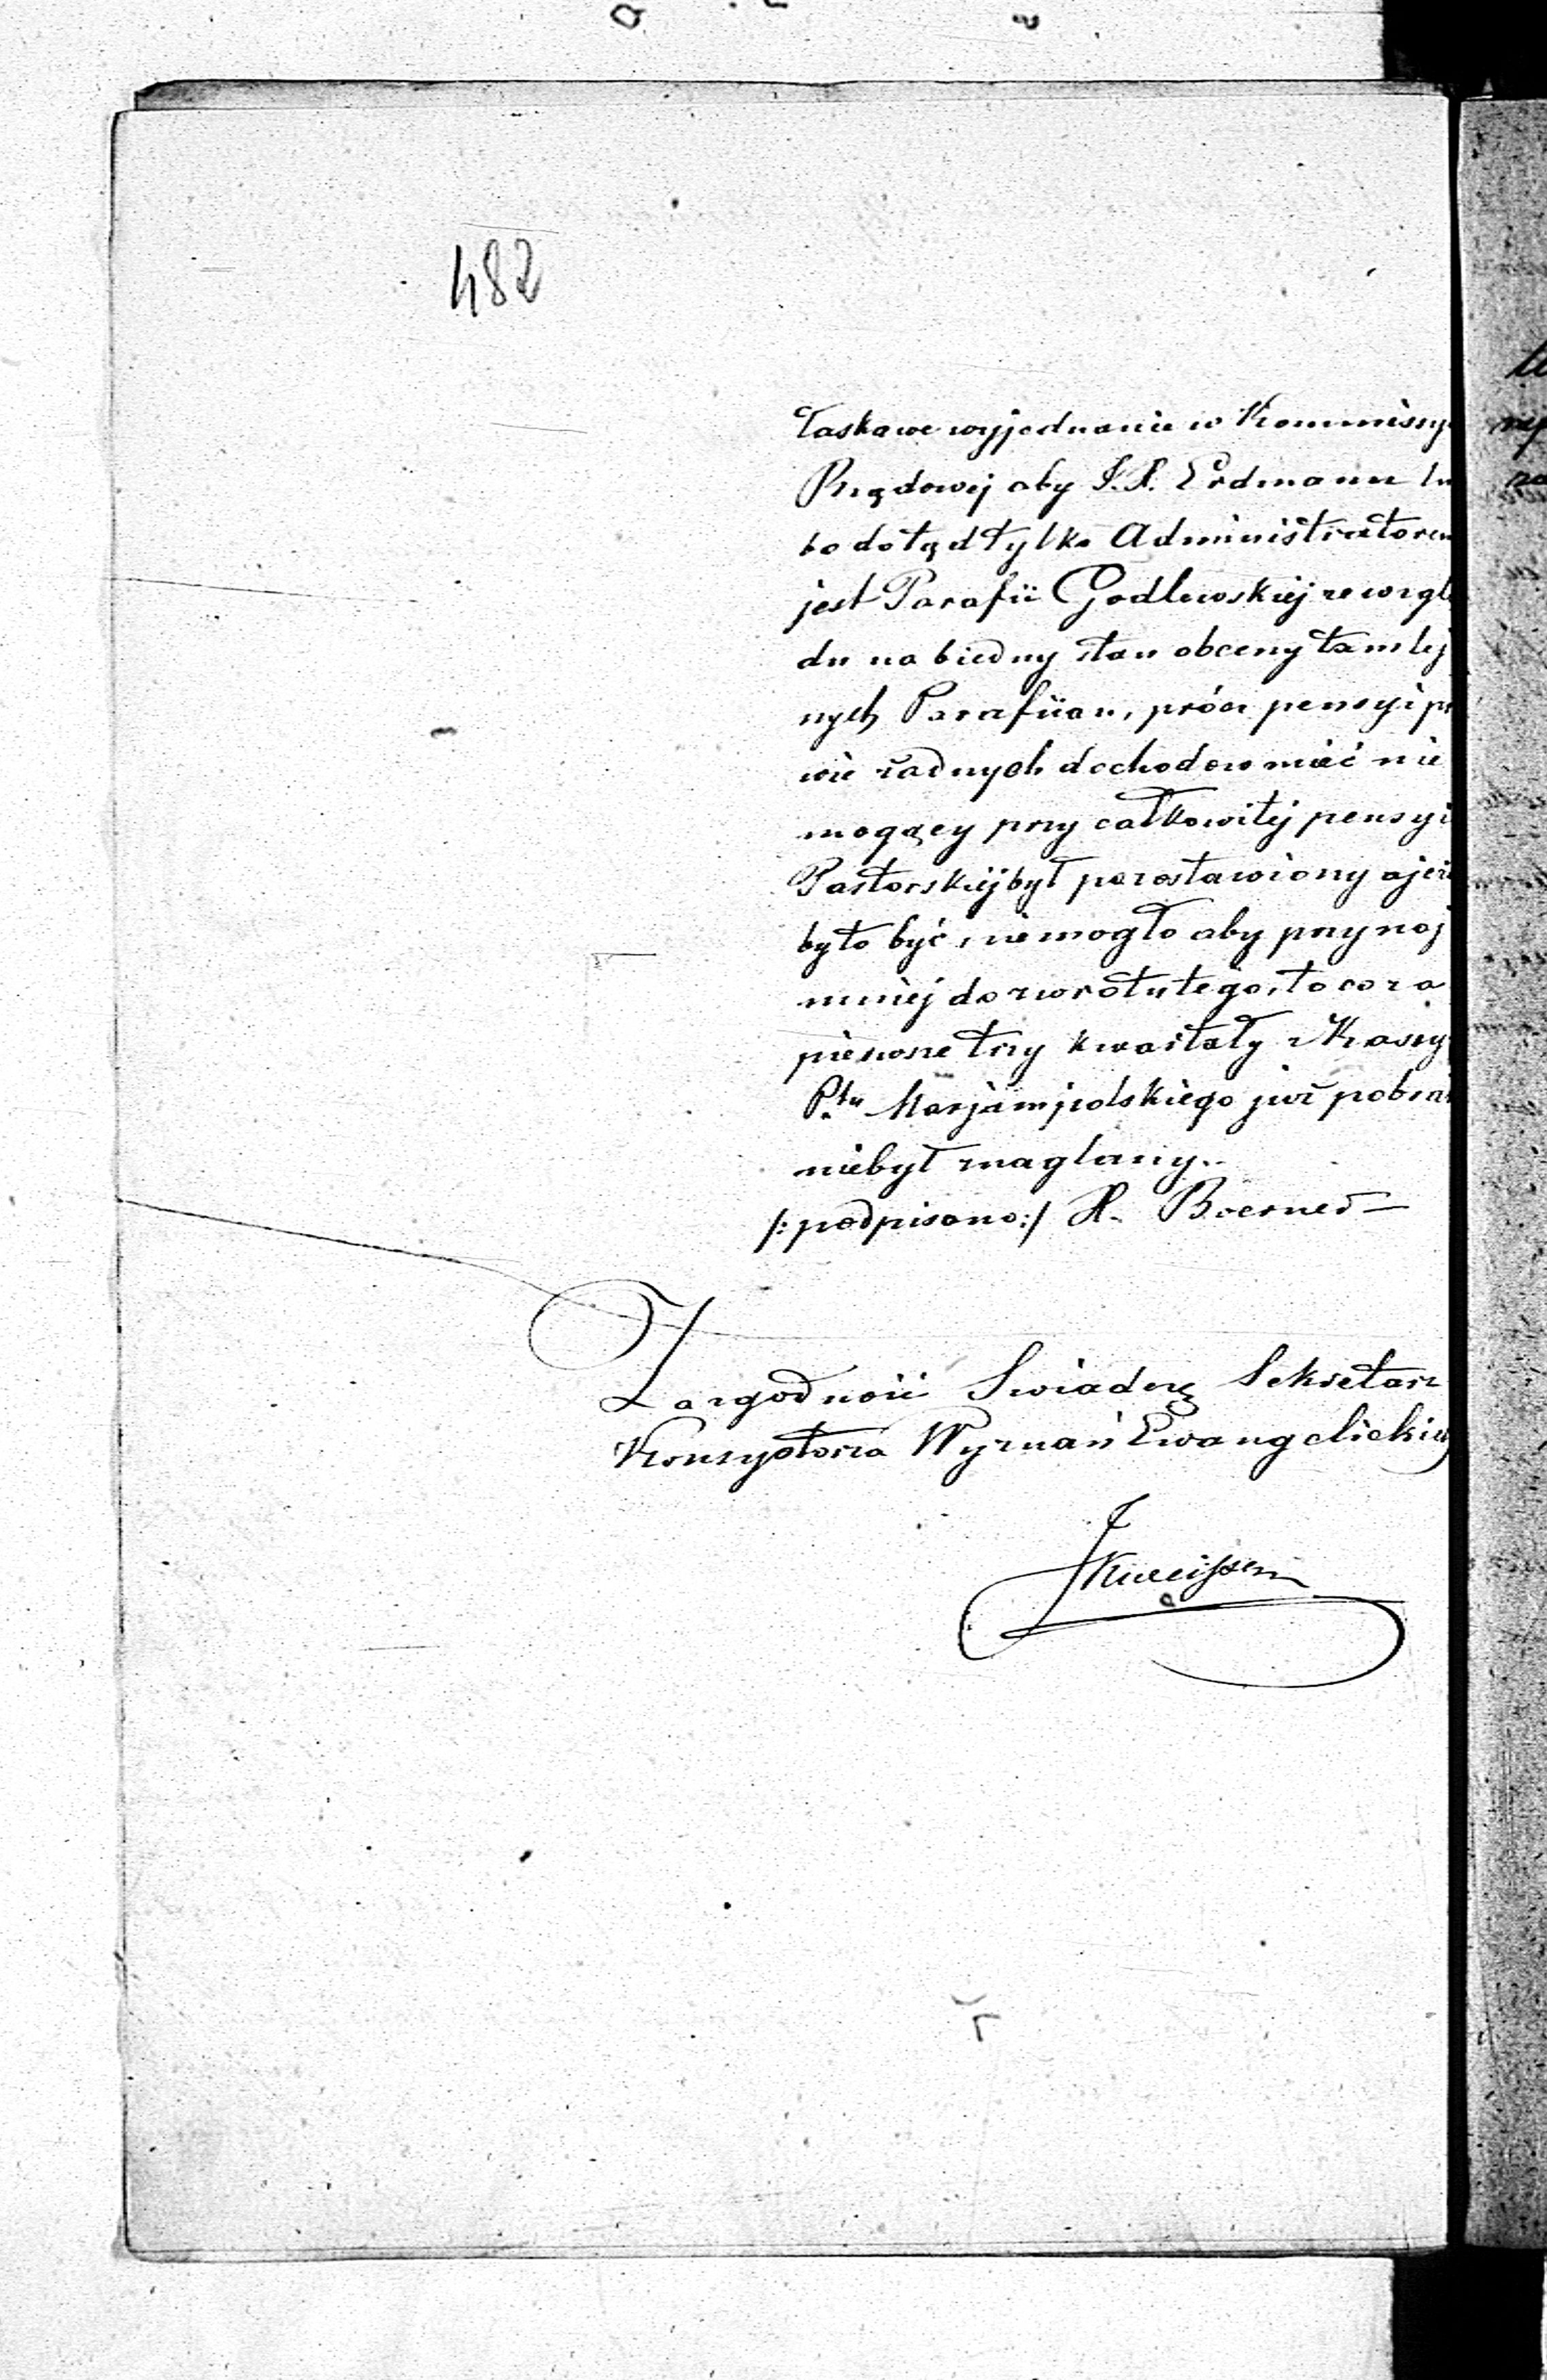 482
łaskawe wyjednanie w Kommissy
Rządowej aby J.X. Erdmann lu
bo dotąd tylko Administratorem
jest Parafii Godlewskiej ze wzglę
du na biedny stan obceny tamtej
nych Parafiian, prócz pensyi pr
wie żadnych dochodow mieć nie
mogący przy całkowitej pensyi
Pastorskiej był pozostawiony a jeże
było być niemogło aby przynaj
mniej do zwrotu tego, to co za
pierwsze trzy kwartały z Kassy
Ptu Marjampolskiego już pobrał
niebył znaglany.
/:podpisano:/ Boerner
Za zgodność Swiadczę Sekretarz
Konsystorza Wyznań Ewangelickich